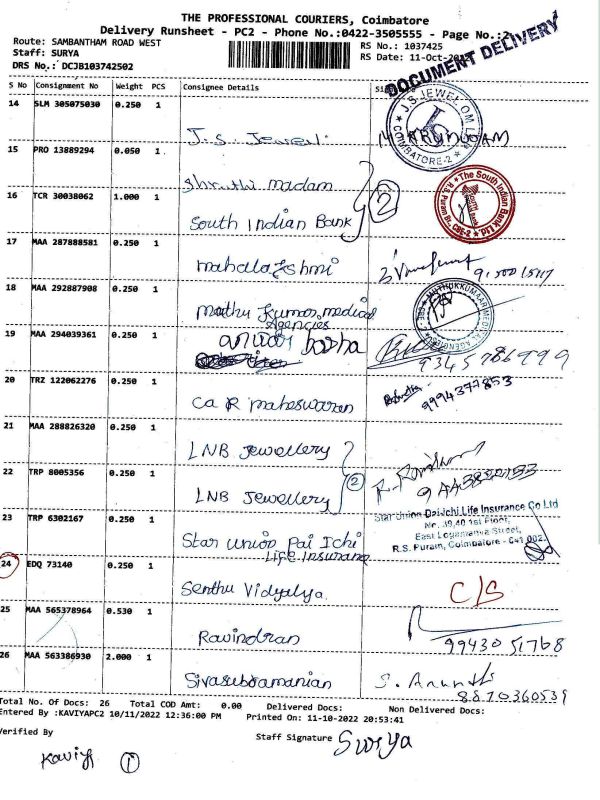 THE PROFESSIONAL COURIERS, Coimbatore
Delivery Runsheet - PC2 - Phone No.:0422-3505555 - Page No.:2
DOCUMENT DELIVERY
Route: SAMBANTHAM ROAD WEST
RS No.: 1037425
Staff: SURYA
RS Date: 11-Oct-
DRS No.: DCJB103742502
S No Consignment No Weight PCS Consignee Details
14 SLM 305075030 0.250 1
J.S Jewel
J.S.JEWEL
COIMBATORE-2
15 PRO 13889294 0.050 1
Shruthi madam
16 TCR 30038062 1.000 1
South Indian Bank
2
The South Indian Bank Ltd
R.S. Puram Br. CBE-2
17 MAA 287888581 0.250 1
mahalakshmi
18 MAA 292887908 0.250 1
Mathu Kumar medical
Agencies
MUTHUKKUMAAR MEDICAL AGENCIES
19 MAA 294039361 0.250 1
anwar basha
9345786999
20 TRZ 122062276 0.250 1
ca R maheswaran
9994377853
21 MAA 288826320 0.250 1
LNB Jewellery
22 TRP 8005356 0.250 1
LNB Jewellery
2
23 TRP 6302167 0.250 1
Star union Dai Ichi
Life Insurance
Star Union Dai-ichi Life Insurance Co Ltd
No. 39,40 1st Floor,
East Logamanya Street,
R.S. Puram, Coimbatore - 641 002.
24 EDQ 73140 0.250 1
Senthu Vidyalya
C/S
25 MAA 565378964 0.530 1
Ravindran
9943051768
26 MAA 563386930 2.000 1
Sivasubramanian
S. Ananth
8870360539
Total No. Of Docs: 26 Total COD Amt: 0.00 Delivered Docs: Non Delivered Docs:
Entered By :KAVIYAPC2 10/11/2022 12:36:00 PM Printed On: 11-10-2022 20:53:41
Verified By
Staff Signature Surya
Kaviya 1